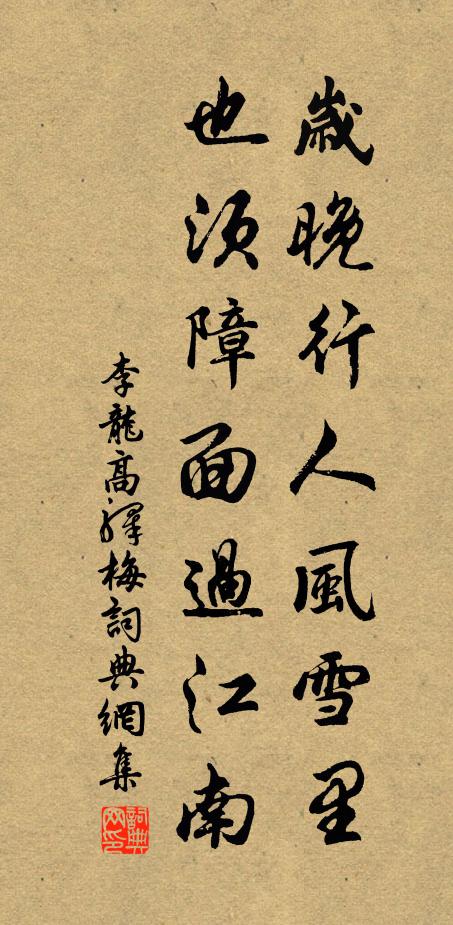 歲晚行人風雪里
也須障面過江南
李龍高驛梅詞典網集
詞典网印